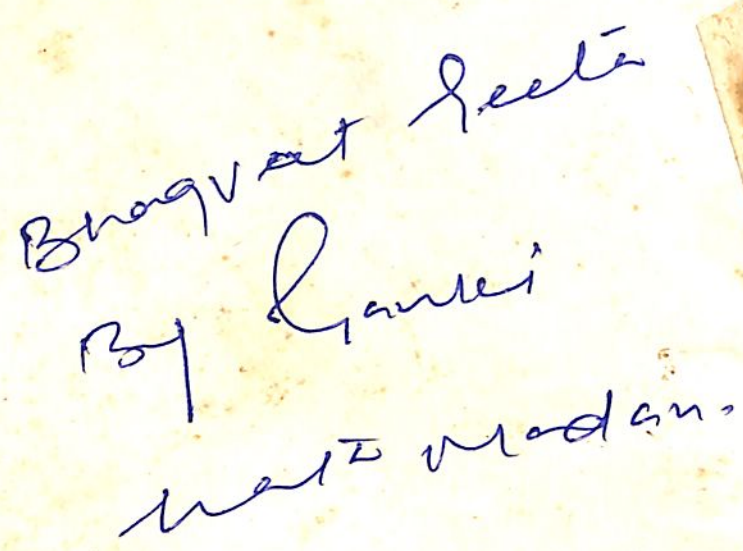 Bhagvat Geeta
By Janki
Nath Madan.